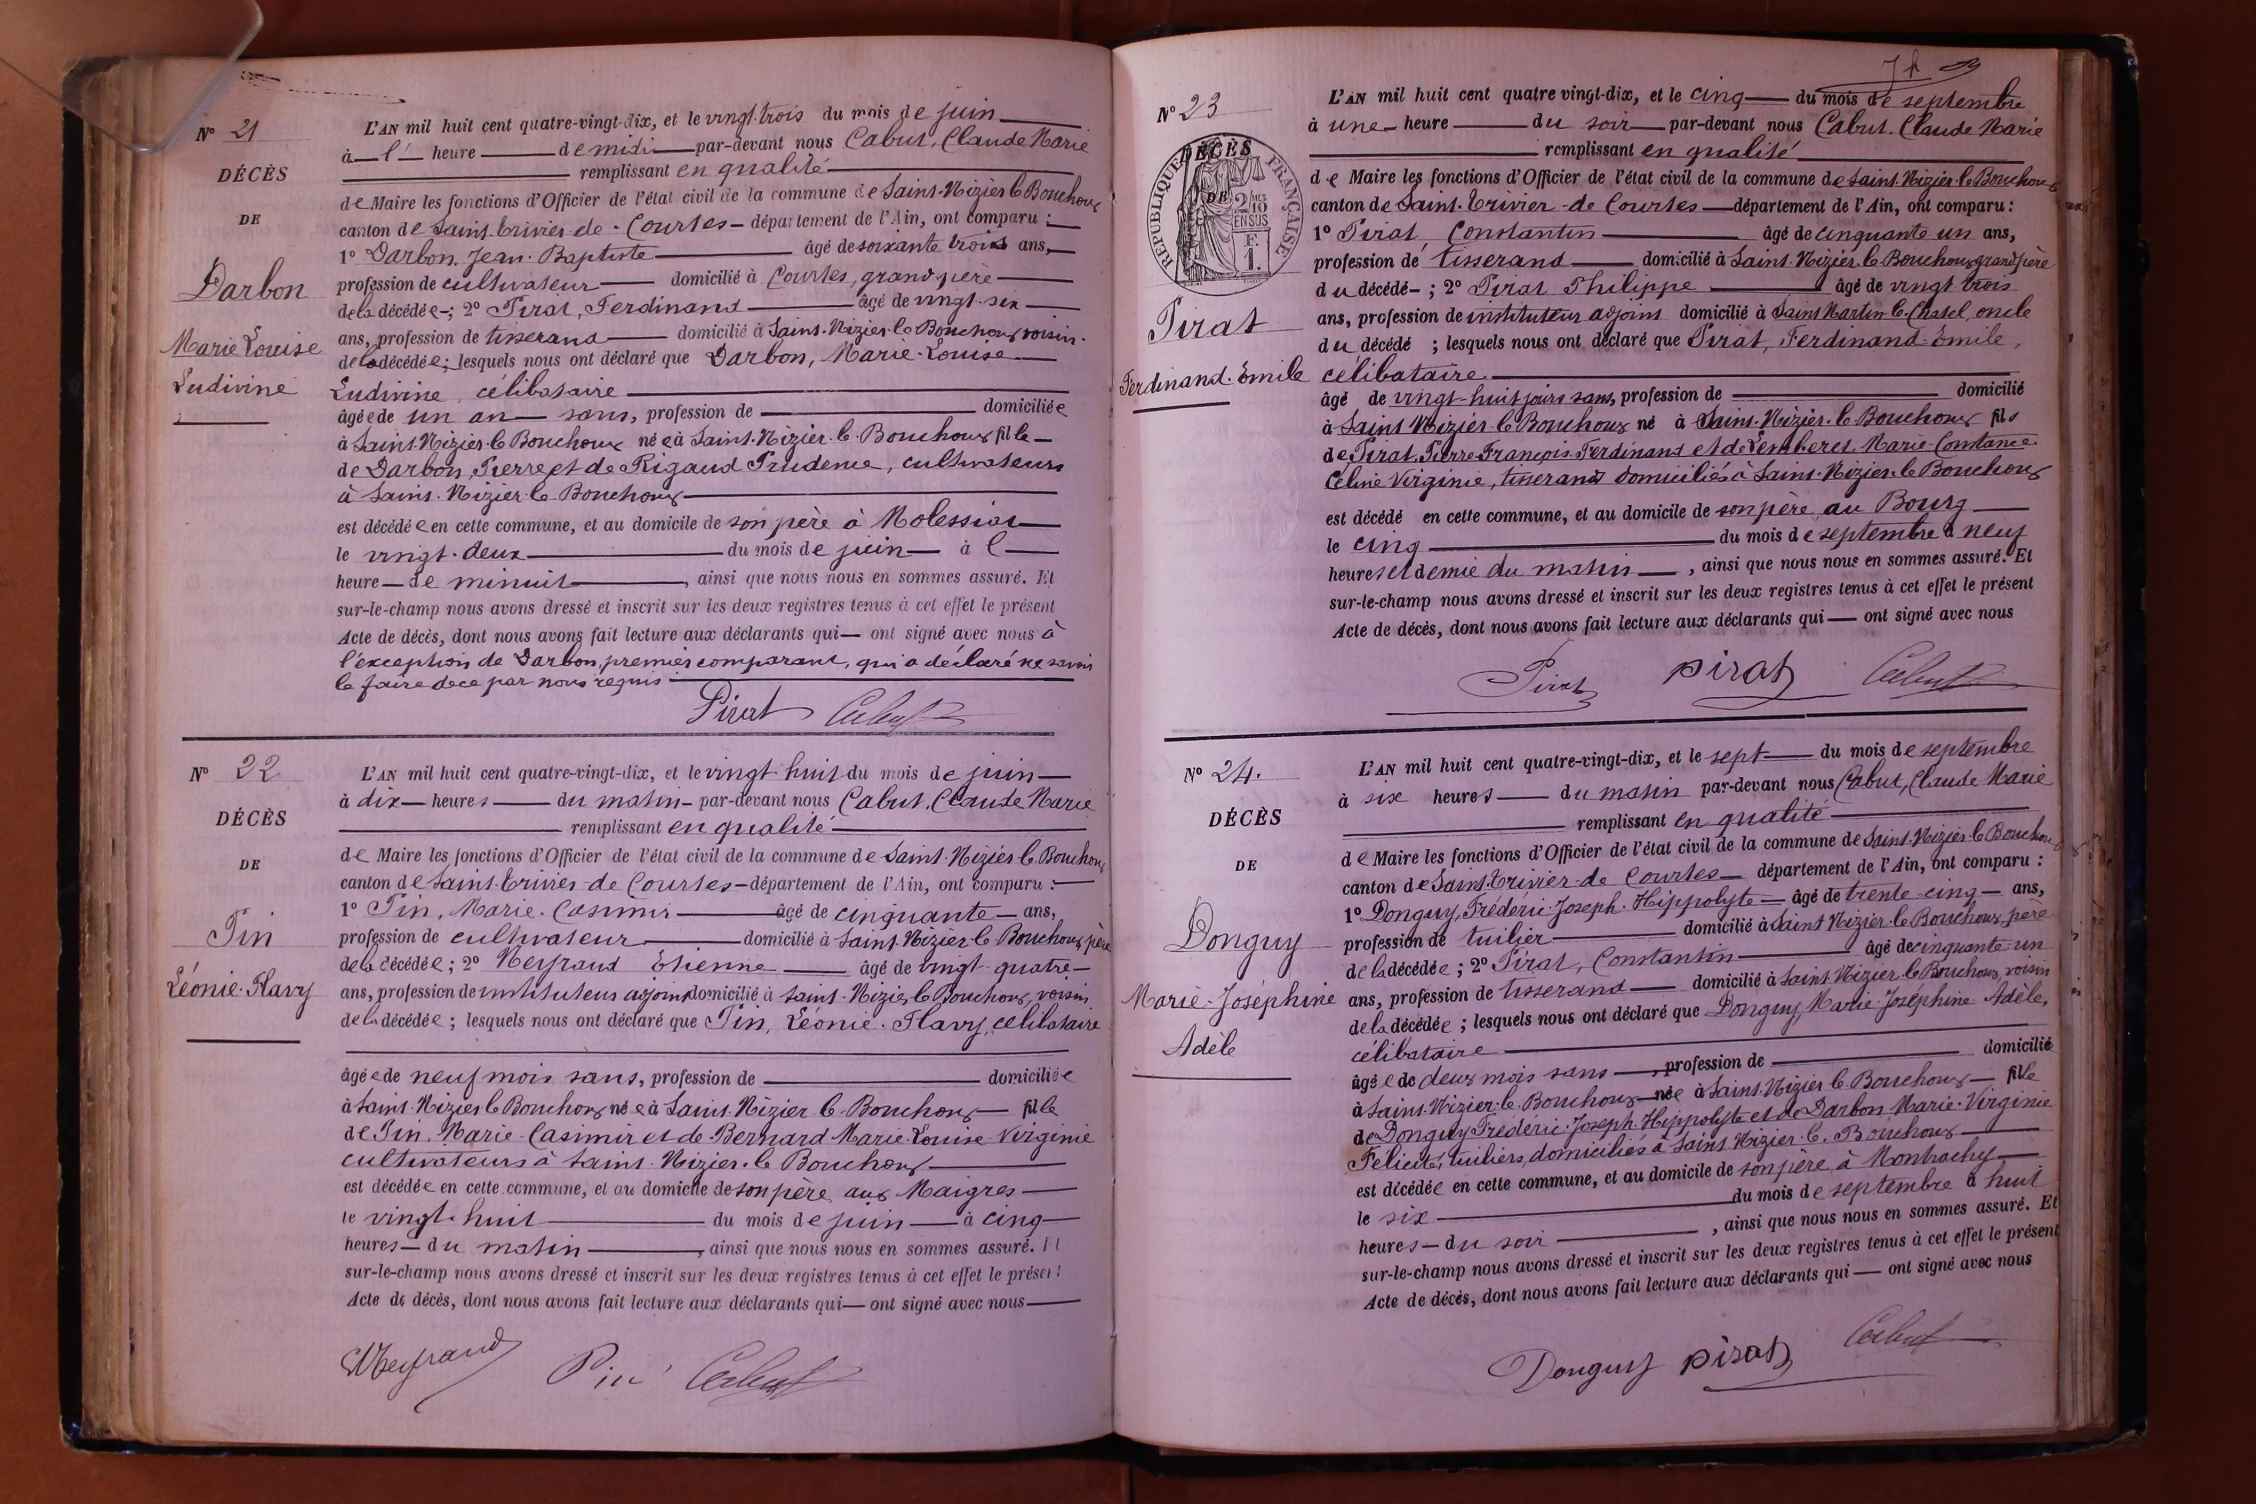 Nº 21
DÉCÈS
DE
Darbon
Marie Louise
Ludivine
L'AN mil huit cent quatre-vingt-dix, et le vingt-trois du mois de juin
à l' heure de midi par-devant nous Cabut, Claude Marie
remplissant en qualité
de Maire les fonctions d'Officier de l'état civil de la commune de Saint-Nizier-le-Bouchoux
canton de Saint-Trivier-de-Courtes département de l'Ain, ont comparu :
1º Darbon, Jean-Baptiste âgé de soixante trois ans,
profession de cultivateur domicilié à Courtes, grand-père
de la décédée ; 2º Pirat, Ferdinand âgé de vingt-six
ans, profession de tisserand domicilié à Saint-Nizier-le-Bouchoux, voisin
de la décédée ; lesquels nous ont déclaré que Darbon, Marie-Louise
Ludivine, célibataire
âgée de un an sans, profession de domiciliée
à Saint-Nizier-le-Bouchoux née à Saint-Nizier-le-Bouchoux fille
de Darbon, Pierre et de Rigaud Prudence, cultivateurs
à Saint-Nizier-le-Bouchoux
est décédée en cette commune, et au domicile de son père à Molessiat
le vingt-deux du mois de juin à l'
heure de minuit, ainsi que nous nous en sommes assuré. Et
sur-le-champ nous avons dressé et inscrit sur les deux registres tenus à cet effet le présent
Acte de décès, dont nous avons fait lecture aux déclarants qui ont signé avec nous à
l'exception de Darbon, premier comparant, qui a déclaré ne savoir
le faire de ce par nous requis
Pirat Cabut
Nº 22
DÉCÈS
DE
Pin
Léonie-Flavy
L'AN mil huit cent quatre-vingt-dix, et le vingt-huit du mois de juin
à dix heures du matin par-devant nous Cabut, Claude Marie
remplissant en qualité
de Maire les fonctions d'Officier de l'état civil de la commune de Saint-Nizier-le-Bouchoux
canton de Saint-Trivier-de-Courtes département de l'Ain, ont comparu :
1º Pin, Marie-Casimir âgé de cinquante ans,
profession de cultivateur domicilié à Saint-Nizier-le-Bouchoux, père
de la décédée ; 2º Neyraud Etienne âgé de vingt-quatre
ans, profession de instituteur adjoint domicilié à Saint-Nizier-le-Bouchoux, voisin
de la décédée ; lesquels nous ont déclaré que Pin, Léonie-Flavy, célibataire
âgée de neuf mois sans, profession de domiciliée
à Saint-Nizier-le-Bouchoux née à Saint-Nizier-le-Bouchoux fille
de Pin, Marie-Casimir et de Bernard Marie-Louise-Virginie
cultivateurs à Saint-Nizier-le-Bouchoux
est décédée en cette commune, et au domicile de son père aux Maigres
le vingt-huit du mois de juin à cinq
heures du matin, ainsi que nous nous en sommes assuré. Et
sur-le-champ nous avons dressé et inscrit sur les deux registres tenus à cet effet le présent
Acte de décès, dont nous avons fait lecture aux déclarants qui ont signé avec nous
Pin Cabut
Nº 23
DÉCÈS
DE
RÉPUBLIQUE FRANÇAISE
2/10 EN SUS
F. 1.
Pirat
Ferdinand-Emile
L'AN mil huit cent quatre vingt-dix, et le cinq du mois de septembre
à une heure du soir par-devant nous Cabut, Claude Marie
remplissant en qualité
de Maire les fonctions d'Officier de l'état civil de la commune de Saint-Nizier-le-Bouchoux
canton de Saint-Trivier-de-Courtes département de l'Ain, ont comparu :
1º Pirat, Constantin âgé de cinquante un ans,
profession de tisserand domicilié à Saint-Nizier-le-Bouchoux grand père
du décédé ; 2º Pirat Philippe âgé de vingt trois
ans, profession de instituteur adjoint domicilié à Saint Martin-le-Chatel, oncle
du décédé ; lesquels nous ont déclaré que Pirat, Ferdinand-Emile,
célibataire
âgé de vingt-huit jours sans, profession de domicilié
à Saint Nizier-le-Bouchoux né à Saint-Nizier-le-Bouchoux fils
de Pirat, Pierre-François-Ferdinand et de Marie-Constance
Céline Virginie, tisserand domiciliés à Saint-Nizier-le-Bouchoux
est décédé en cette commune, et au domicile de son père au Bourg
le cinq du mois de septembre à neuf
heures et demie du matin, ainsi que nous nous en sommes assuré. Et
sur-le-champ nous avons dressé et inscrit sur les deux registres tenus à cet effet le présent
Acte de décès, dont nous avons fait lecture aux déclarants qui ont signé avec nous
Pirat pirat Cabut
Nº 24.
DÉCÈS
DE
Donguy
Marie-Joséphine
Adèle
L'AN mil huit cent quatre-vingt-dix, et le sept du mois de septembre
à six heures du matin par-devant nous Cabut, Claude Marie
remplissant en qualité
de Maire les fonctions d'Officier de l'état civil de la commune de Saint-Nizier-le-Bouchoux
canton de Saint-Trivier-de-Courtes département de l'Ain, ont comparu :
1º Donguy, Frédéric-Joseph-Hippolyte âgé de trente-cinq ans,
profession de tuilier domicilié à Saint Nizier-le-Bouchoux, père
de la décédée ; 2º Pirat, Constantin âgé de cinquante-un
ans, profession de tisserand domicilié à Saint Nizier-le-Bouchoux, voisin
de la décédée ; lesquels nous ont déclaré que Donguy, Marie-Joséphine Adèle,
célibataire
âgée de deux mois sans, profession de domicilié
à Saint-Nizier-le-Bouchoux née à Saint-Nizier-le-Bouchoux fille
de Donguy Frédéric-Joseph-Hippolyte et de Darbon Marie-Virginie
Félicité, tuiliers, domiciliés à Saint Nizier-le-Bouchoux
est décédée en cette commune, et au domicile de son père, à Montrachy
le six du mois de septembre à huit
heures du soir, ainsi que nous nous en sommes assuré. Et
sur-le-champ nous avons dressé et inscrit sur les deux registres tenus à cet effet le présent
Acte de décès, dont nous avons fait lecture aux déclarants qui ont signé avec nous
Donguy pirat Cabut